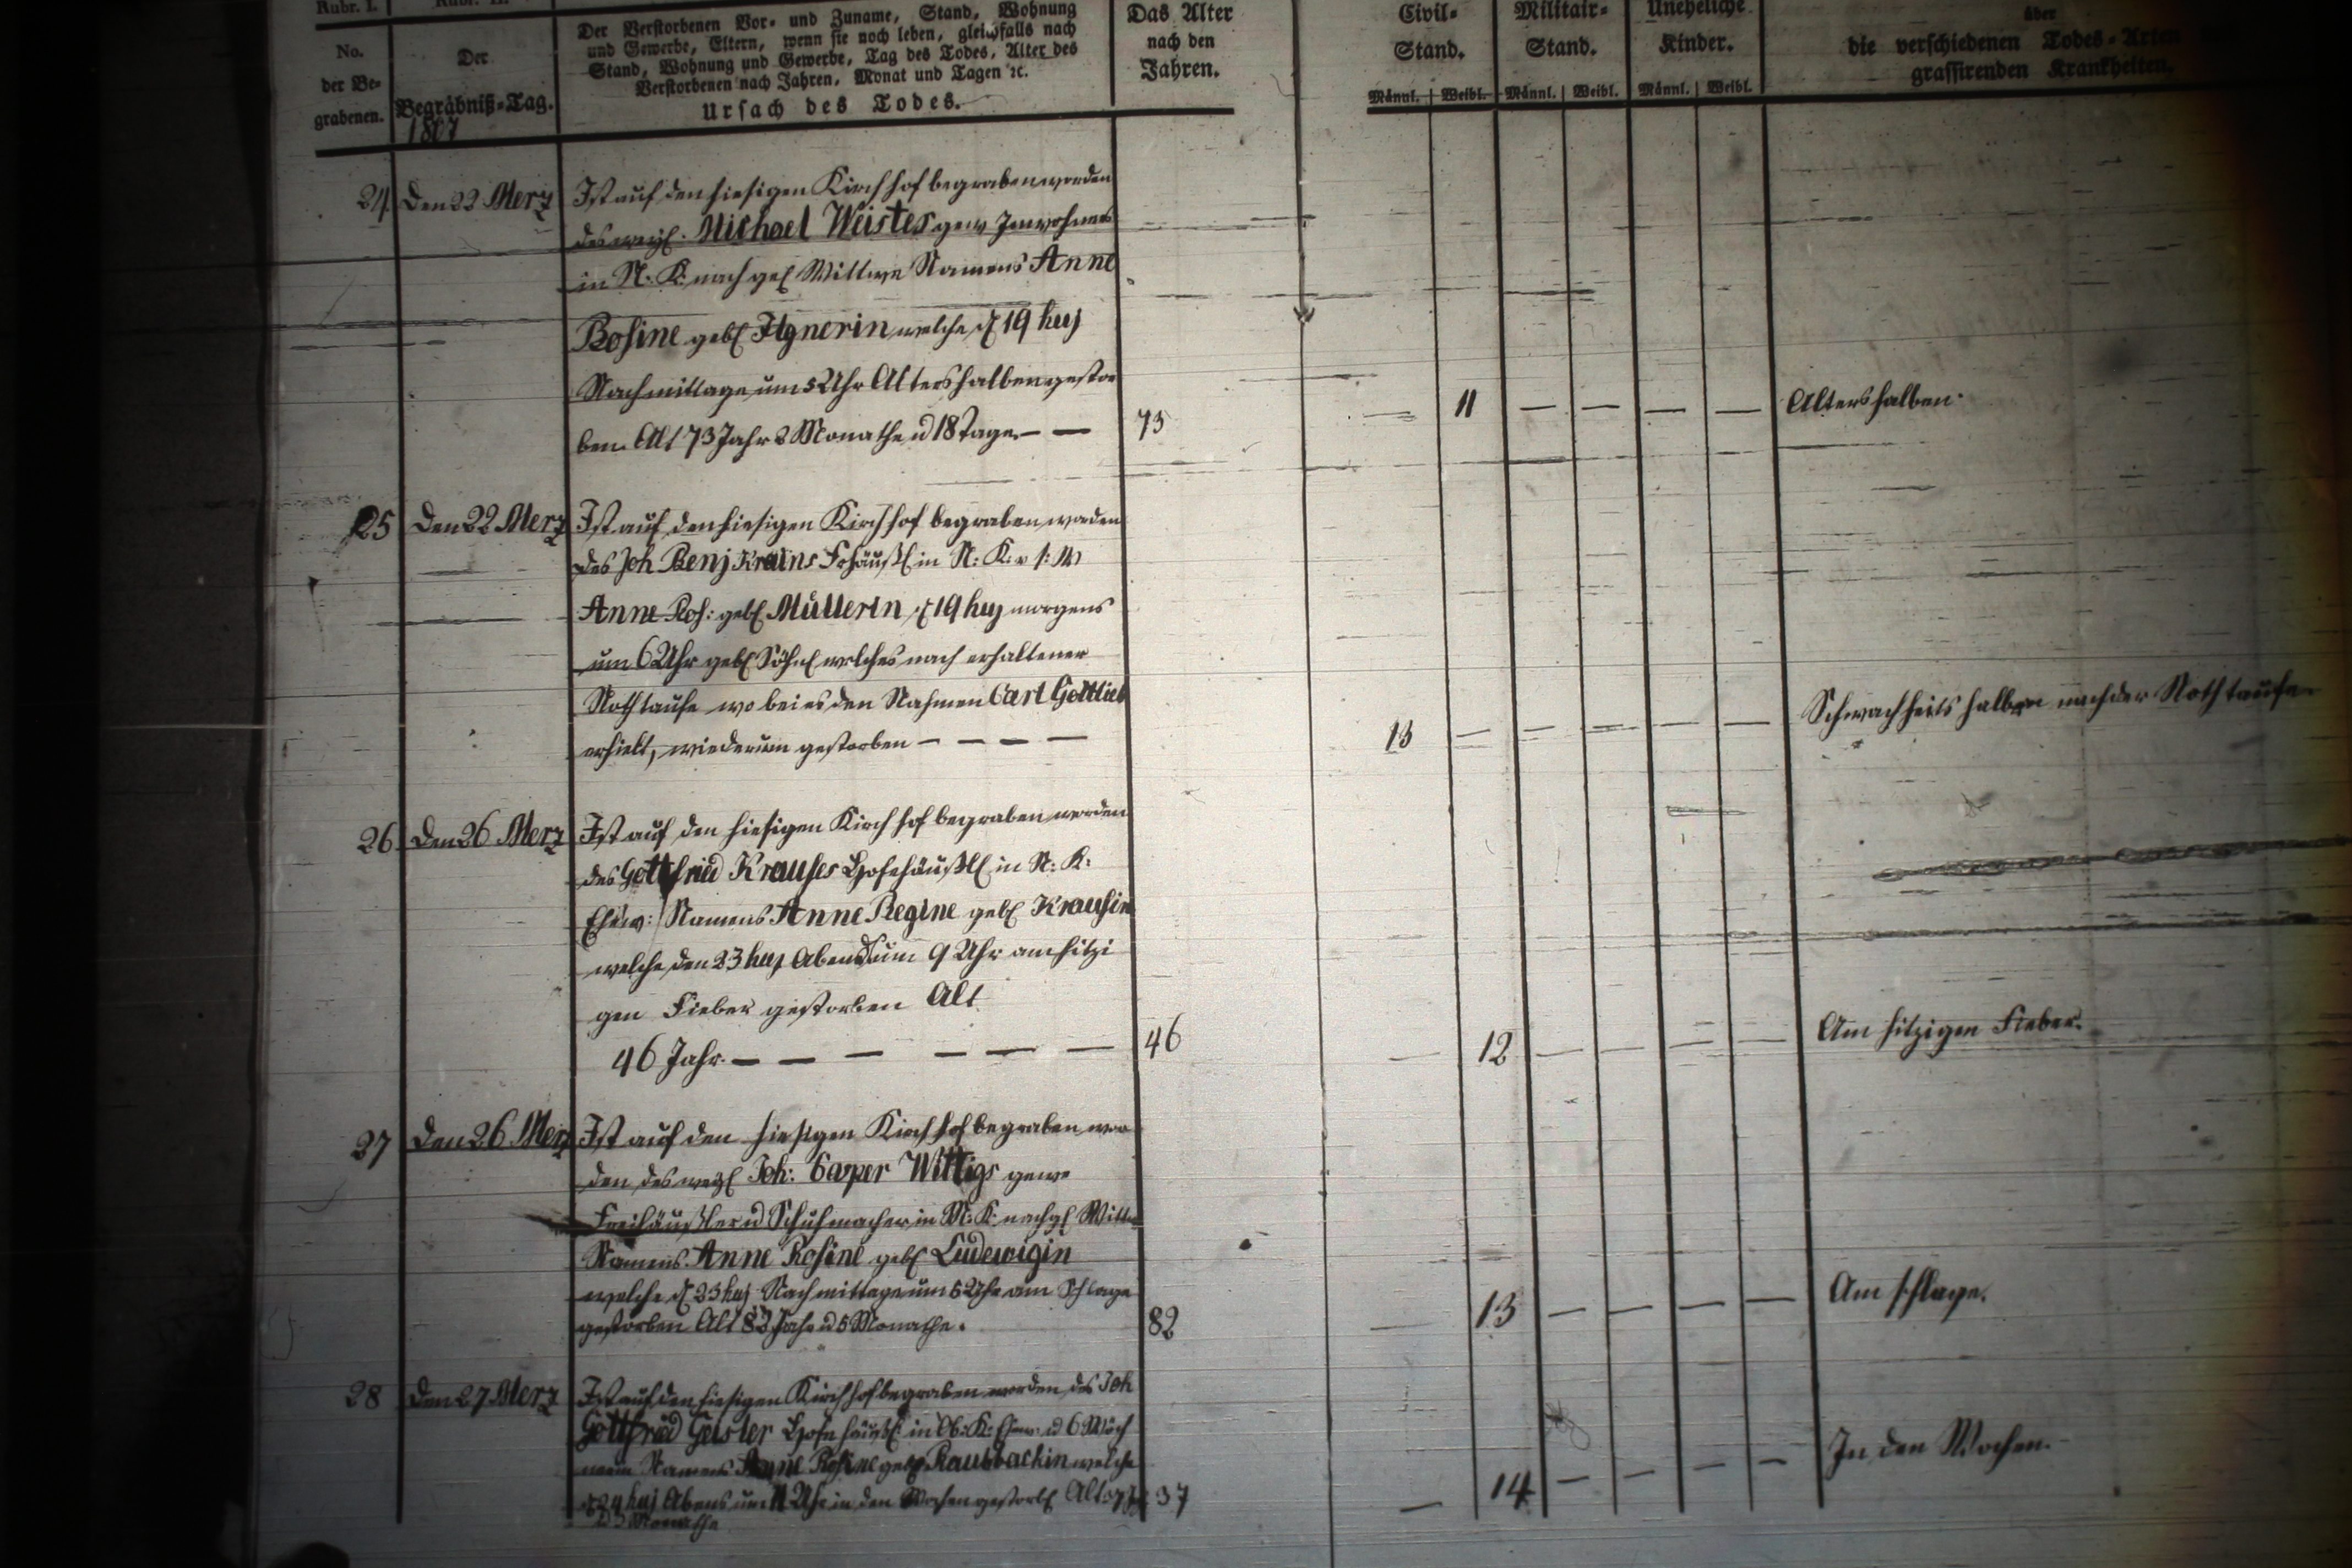 Rubr. I.
No.
der Be-
grabenen.
Der
Begräbniß-Tag.
1807
Der Verstorbenen Vor- und Zuname, Stand, Wohnung
und Gewerbe, Eltern, wenn sie noch leben, gleichfalls nach
Stand, Wohnung und Gewerbe, Tag des Todes, Alter des
Verstorbenen nach Jahren, Monat und Tagen ꝛc.
Ursach des Todes.
Das Alter
nach den
Jahren.
Civil-
Stand.
Männl. Weibl.
Militair-
Stand.
Männl. Weibl.
Uneheliche
Kinder.
Männl. Weibl.
über
die verschiedenen Todes-Arten
grassirenden Krankheiten.
24 Den 22 Merz
Ist auf den hiesigen Kirchhof begraben worden
des weyl. Michael Weistes gew Inwohners
in N. K. nach gel Wittwe Namens Anne
Rosine gebl Ilgnerin welche d 19 huj
Nachmittage um 5 Uhr Altershalben gestor
ben. Alt 73 Jahr 2 Monathe u 18 Tage. — —
73 — 11 — — — — Altershalben.
25 Den 22 Merz
Ist auf den hiesigen Kirchhof begraben worden
des Joh Benj Krauns Frhäusl in N: K:
Anne Ros: gebl Müllerin d 19 huj morgens
um 6 Uhr gebl Söhnl welches nach erhaltener
Nothtaufe wobei es den Nahmen Carl Gottlieb
erhielt, wiederum gestorben — — — —
13 — — — — — Schwachheits halben nach der Nothtaufe
26 Den 26 Merz
Ist auf den hiesigen Kirchhof begraben worden
des Gottfried Krauses Hofehäusl in N: K:
Ehew: Namens Anne Regine gebl Krausin
welche den 23 huj Abends um 9 Uhr am hitzi
gen Fieber gestorben Alt
46 Jahr. — — — — — —
46 — 12 — — — — Am hitzigen Fieber.
27 Den 26 Merz
Ist auf den hiesigen Kirchhof begraben wor
den des weyl Joh: Casper Wittigs gewe
Freihäusler u Schuhmacher in N: K: nachgl Wittw
Namens Anne Rosine gebl Ludewigin
welche d 23 huj Nachmittage um 5 Uhr am Schlage
gestorben Alt 82 Jahr u 5 Monathe.
82 — 13 — — — — Am Schlage.
28 Den 27 Merz
Ist auf den hiesigen Kirchhof begraben worden des Joh
Gottfried Geisler Hofehäusl in Ob: K: Ehew u 6 Wöch
nerin Namens Anne Rosine gebl Raubbachin welche
d 24 huj Abens um 11 Uhr in den Wochen gestorb Alt 37 J
Monathe
37 — 14 — — — — In den Wochen.